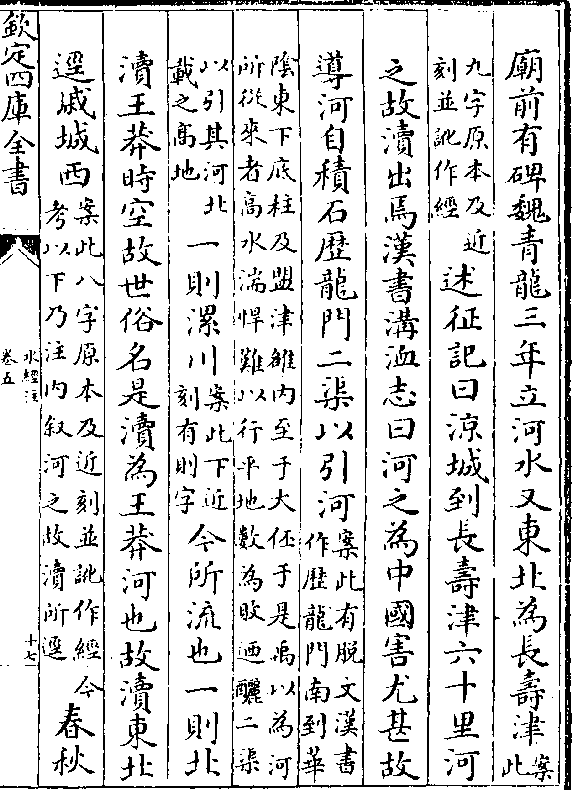 廟前有碑魏青龍三年立河水又東北為長壽津案此
九字原本及近刻並訛作經述征記曰涼城到長壽津六十里河
之故瀆出焉漢書溝洫志曰河之為中國害尤甚故
導河自積石歷龍門二渠以引河案此有脫文漢書作歷龍門南到華
陰東下底柱及盟津雒內至于大伾于是禹以為河所從來者高水湍悍難以行平地數為敗迺釃二渠
以引其河北載之高地一則漯川案此下近刻有則字今所流也一則北
瀆王莽時空故世俗名是瀆為王莽河也故瀆東北
逕戚城西案此八字原本及近刻並訛作經今考以下乃注內叙河之故瀆所逕春秋
欽定四庫全書
水經注
卷五
十七